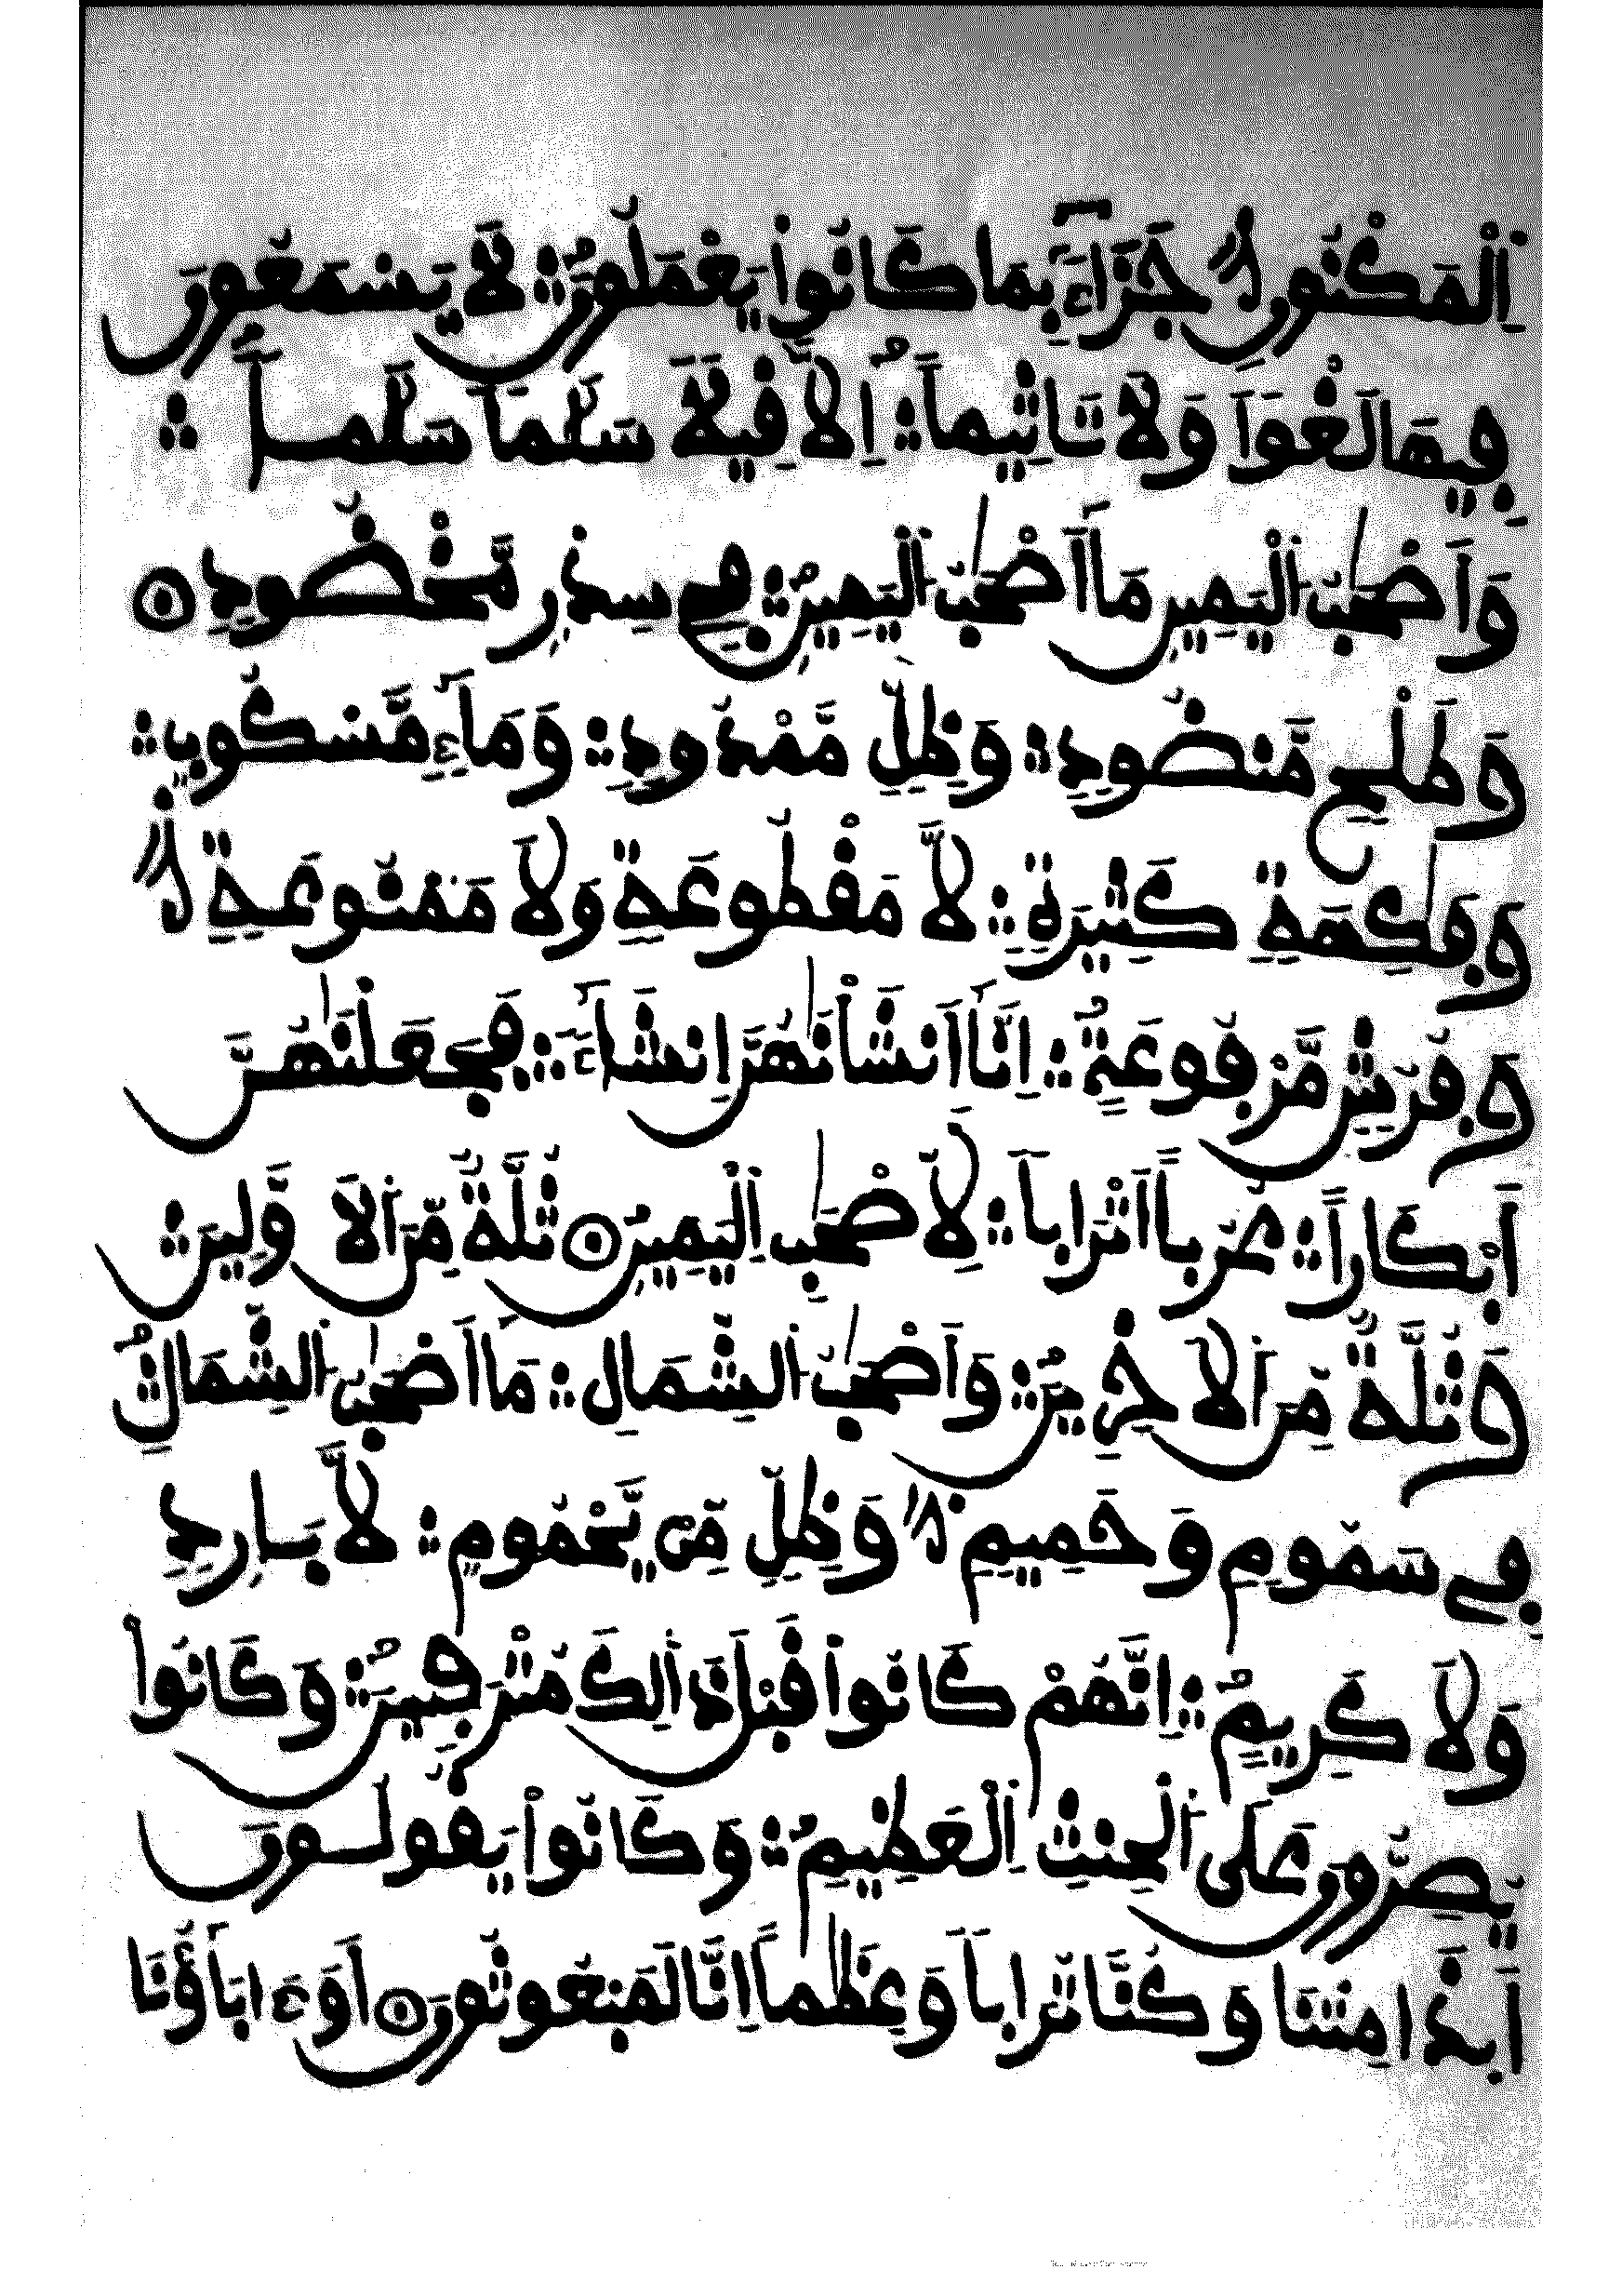 اِ۬لْمَكْنُونِ جَزَآءَۢ بِمَا كَانُواْ يَعْمَلُونَ لَا يَسْمَعُونَ
فِيهَا لَغْواٗ وَلَا تَاثِيماً اِلَّا قِيلاٗ سَلَٰماٗ سَلَٰماٗ
وَأَصْحَٰبُ اُ۬لْيَمِينِ مَآ أَصْحَٰبُ اُ۬لْيَمِينِ فِي سِدْرٖ مَّخْضُودٖ
وَطَلْحٖ مَّنضُودٖ وَظِلّٖ مَّمْدُودٖ وَمَآءٖ مَّسْكُوبٖ
وَفَٰكِهَةٖ كَثِيرَةٖ لَّا مَقْطُوعَةٖ وَلَا مَمْنُوعَةٖ
وَفُرُشٖ مَّرْفُوعَةٍ اِنَّآ أَنشَأْنَٰهُنَّ إِنشَآءٗ فَجَعَلْنَٰهُنَّ
أَبْكَاراً عُرُباً اَتْرَاباٗ لِّأَصْحَٰبِ اِ۬لْيَمِينِ ثُلَّةٞ مِّنَ اَ۬لَاوَّلِينَ
وَثُلَّةٞ مِّنَ اَ۬لَاخِرِينَ وَأَصْحَٰبُ اُ۬لشِّمَالِ مَآ أَصْحَٰبُ اُ۬لشِّمَالِ
فِي سَمُومٖ وَحَمِيمٖ وَظِلّٖ مِّنْ يَّحْمُومٖ لَّا بَارِدٖ
وَلَا كَرِيمٍ اِنَّهُمْ كَانُواْ قَبْلَ ذَٰلِكَ مُتْرَفِينَ وَكَانُواْ
يُصِرُّونَ عَلَى اَ۬لْحِنثِ اِ۬لْعَظِيمِ وَكَانُواْ يَقُولُونَ
أَئِذَا مِتْنَا وَكُنَّا تُرَاباٗ وَعِظَٰماً اِنَّا لَمَبْعُوثُونَ أَوَءَابَآؤُنَا